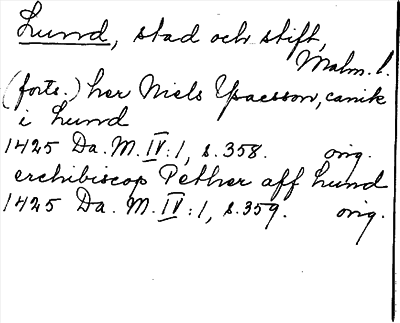 Lund, stad och stift,
Malm. l.
(forts.) her Niels Ysacsson, canik
i Lund
1425 Da. M. IV: 1, s. 358. orig.
erchibiscop Pether aff Lund
1425 Da. M. IV: 1, s. 359. orig.